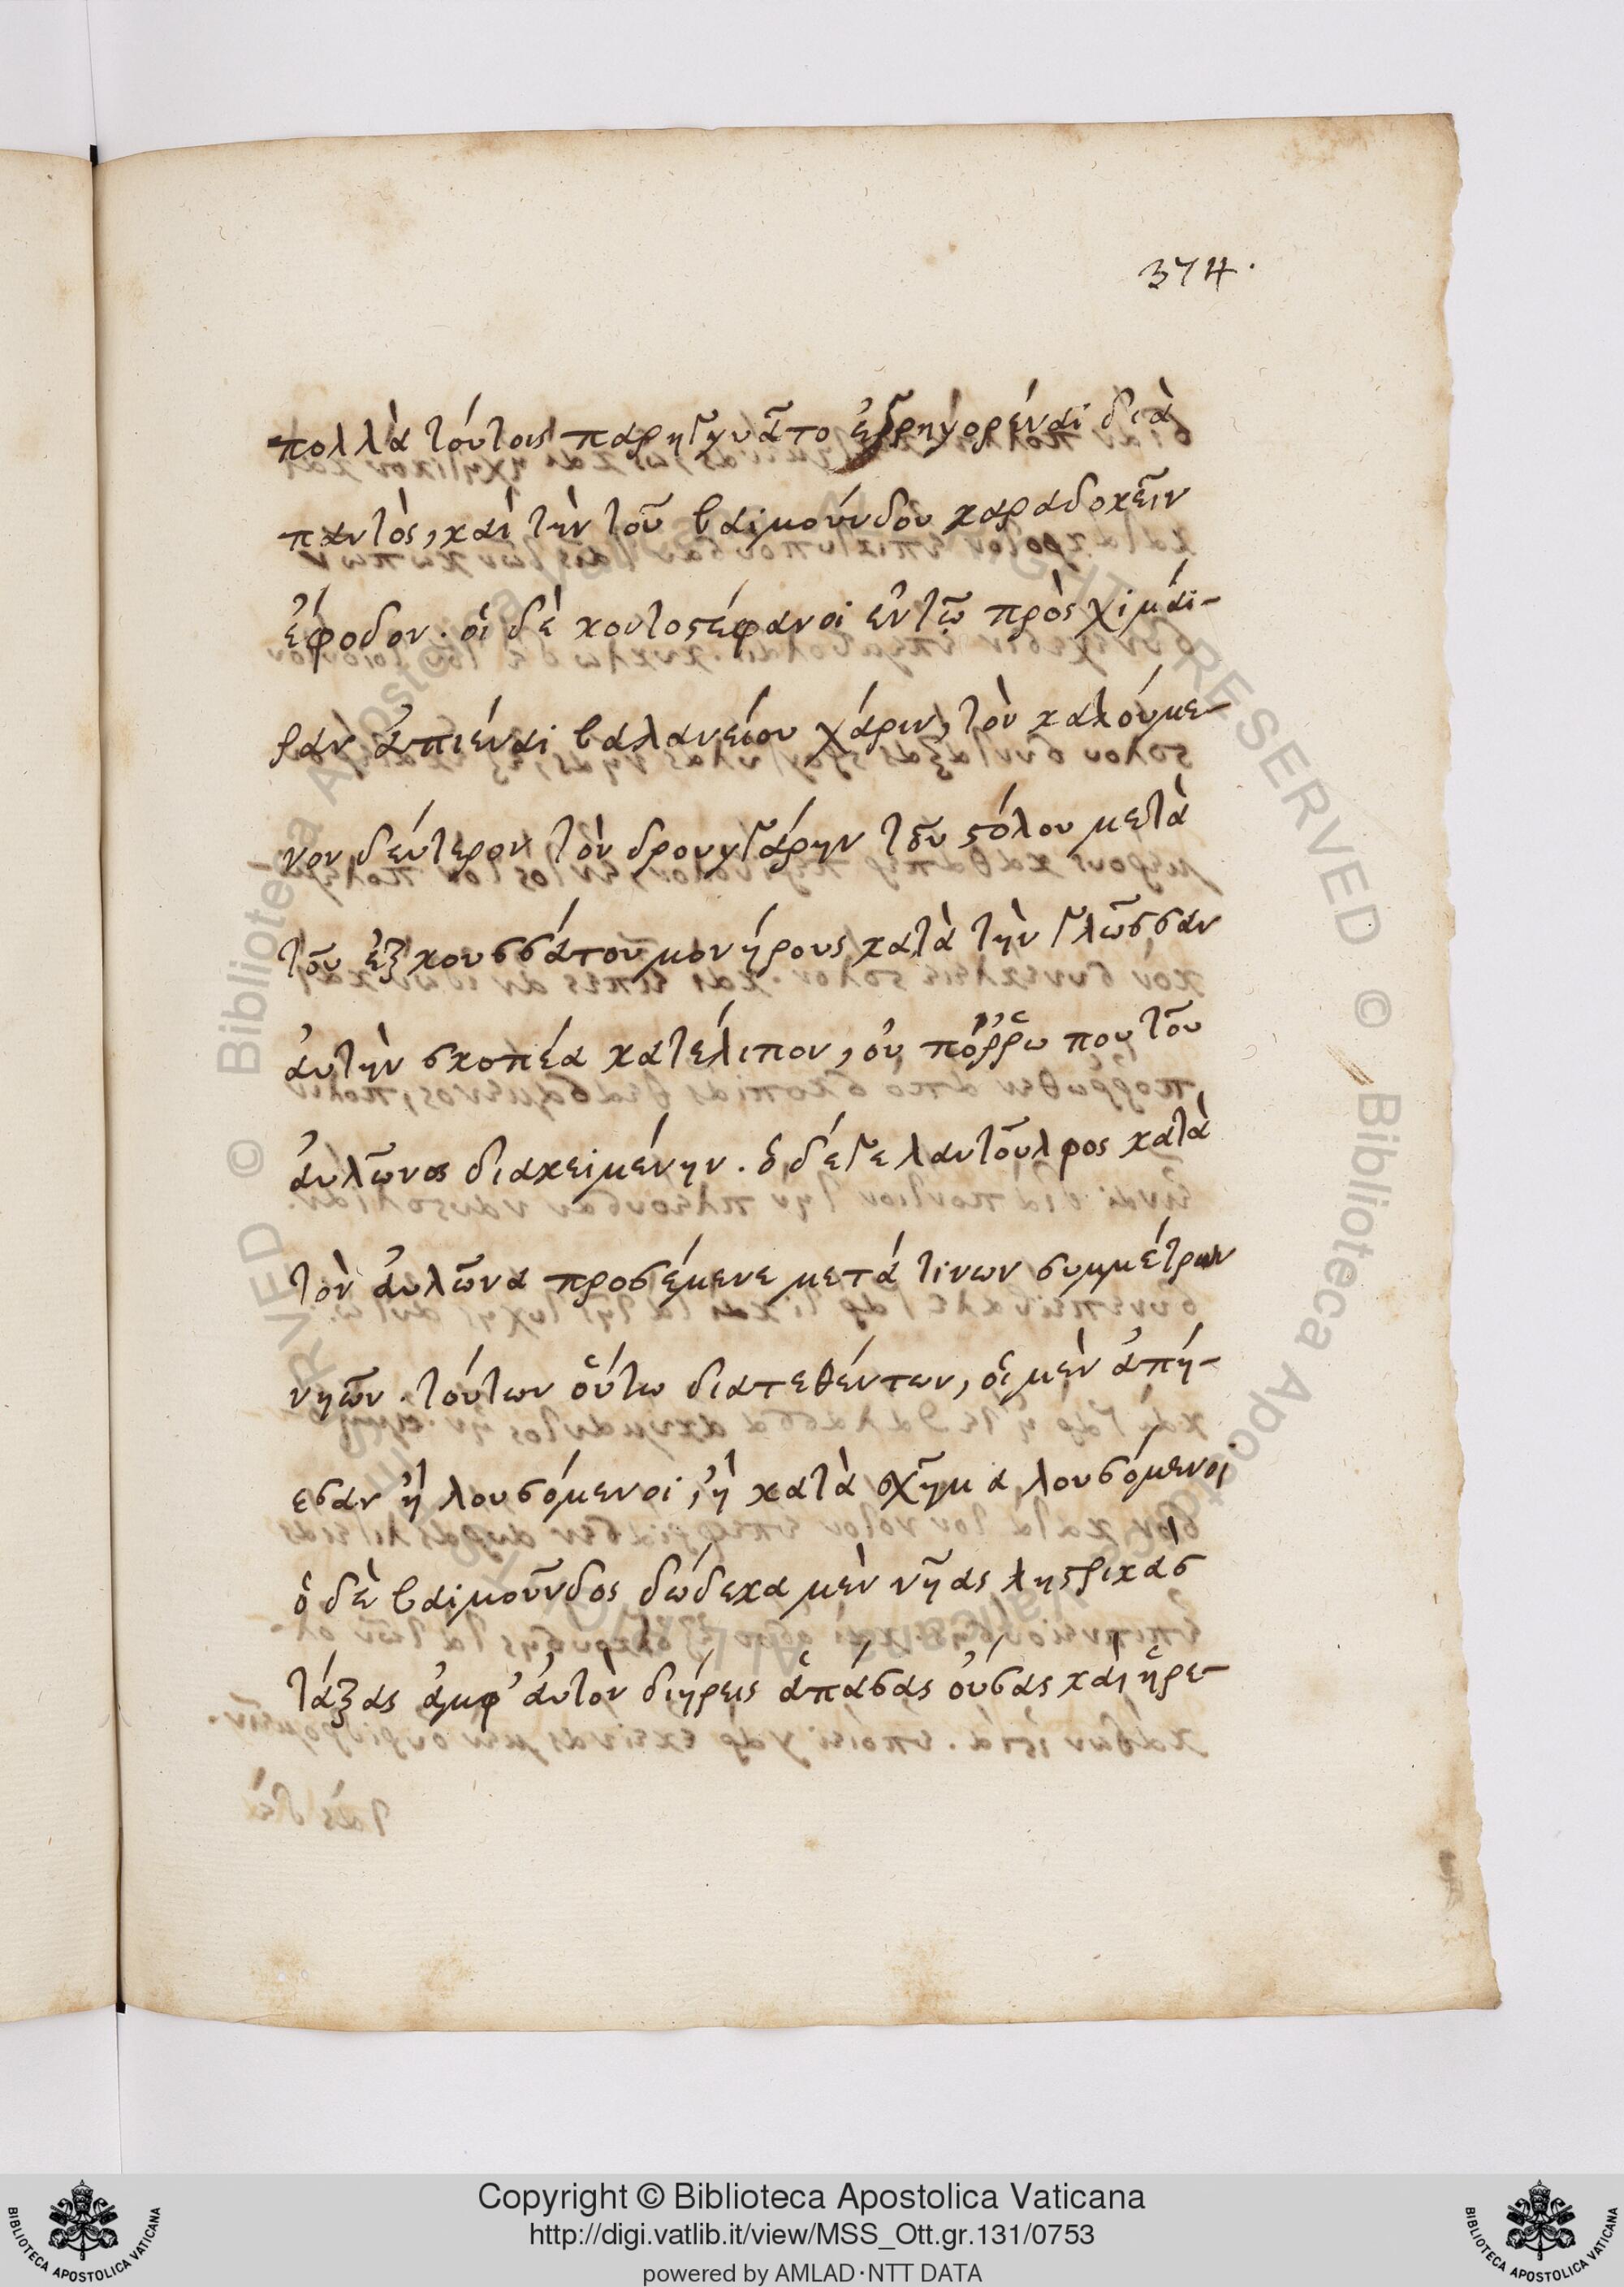 374.
πολλὰ τούτοις παρηγγυᾶτο ἐγρηγορέναι διὰ
παντὸς, καὶ τὴν τοῦ βαϊμούνδου καραδοκεῖν
ἔφοδον. οἱ δὲ κοντοστέφανοι ἐν τῷ πρὸς χιμάι-
ραν ἀπιέναι βαλανείου χάριν, τὸν καλούμε-
νον δεύτερον τὸν δρουγγάρην τοῦ στόλου μετὰ
τοῦ ἐξκουσσάτου μονήρους κατὰ τὴν γλῶσσαν
ἀυτὴν σκοπέα κατέλιπον, οὐ πόῤῥω που τοῦ
ἀυλῶνος διακειμένην. ὁ δέ γε λαντοῦλφος κατὰ
τὸν ἀυλῶνα προσέμενε μετά τινων συμμέτρων
νηῶν. τούτων οὕτω διατεθέντων, οἱ μὲν ἀπῄ-
εσαν ἢ λουσόμενοι, ἢ κατὰ σχῆμα λουσόμενοι
ὁ δὲ βαϊμοῦνδος δώδεκα μὲν νῆας λῃστρικὰς
τάξας ἀμφ' ἀυτὸν διήρεις ἁπάσας οὔσας καὶ ἠρε-
Copyright © Biblioteca Apostolica Vaticana
http://digi.vatlib.it/view/MSS_Ott.gr.131/0753
powered by AMLAD·NTT DATA